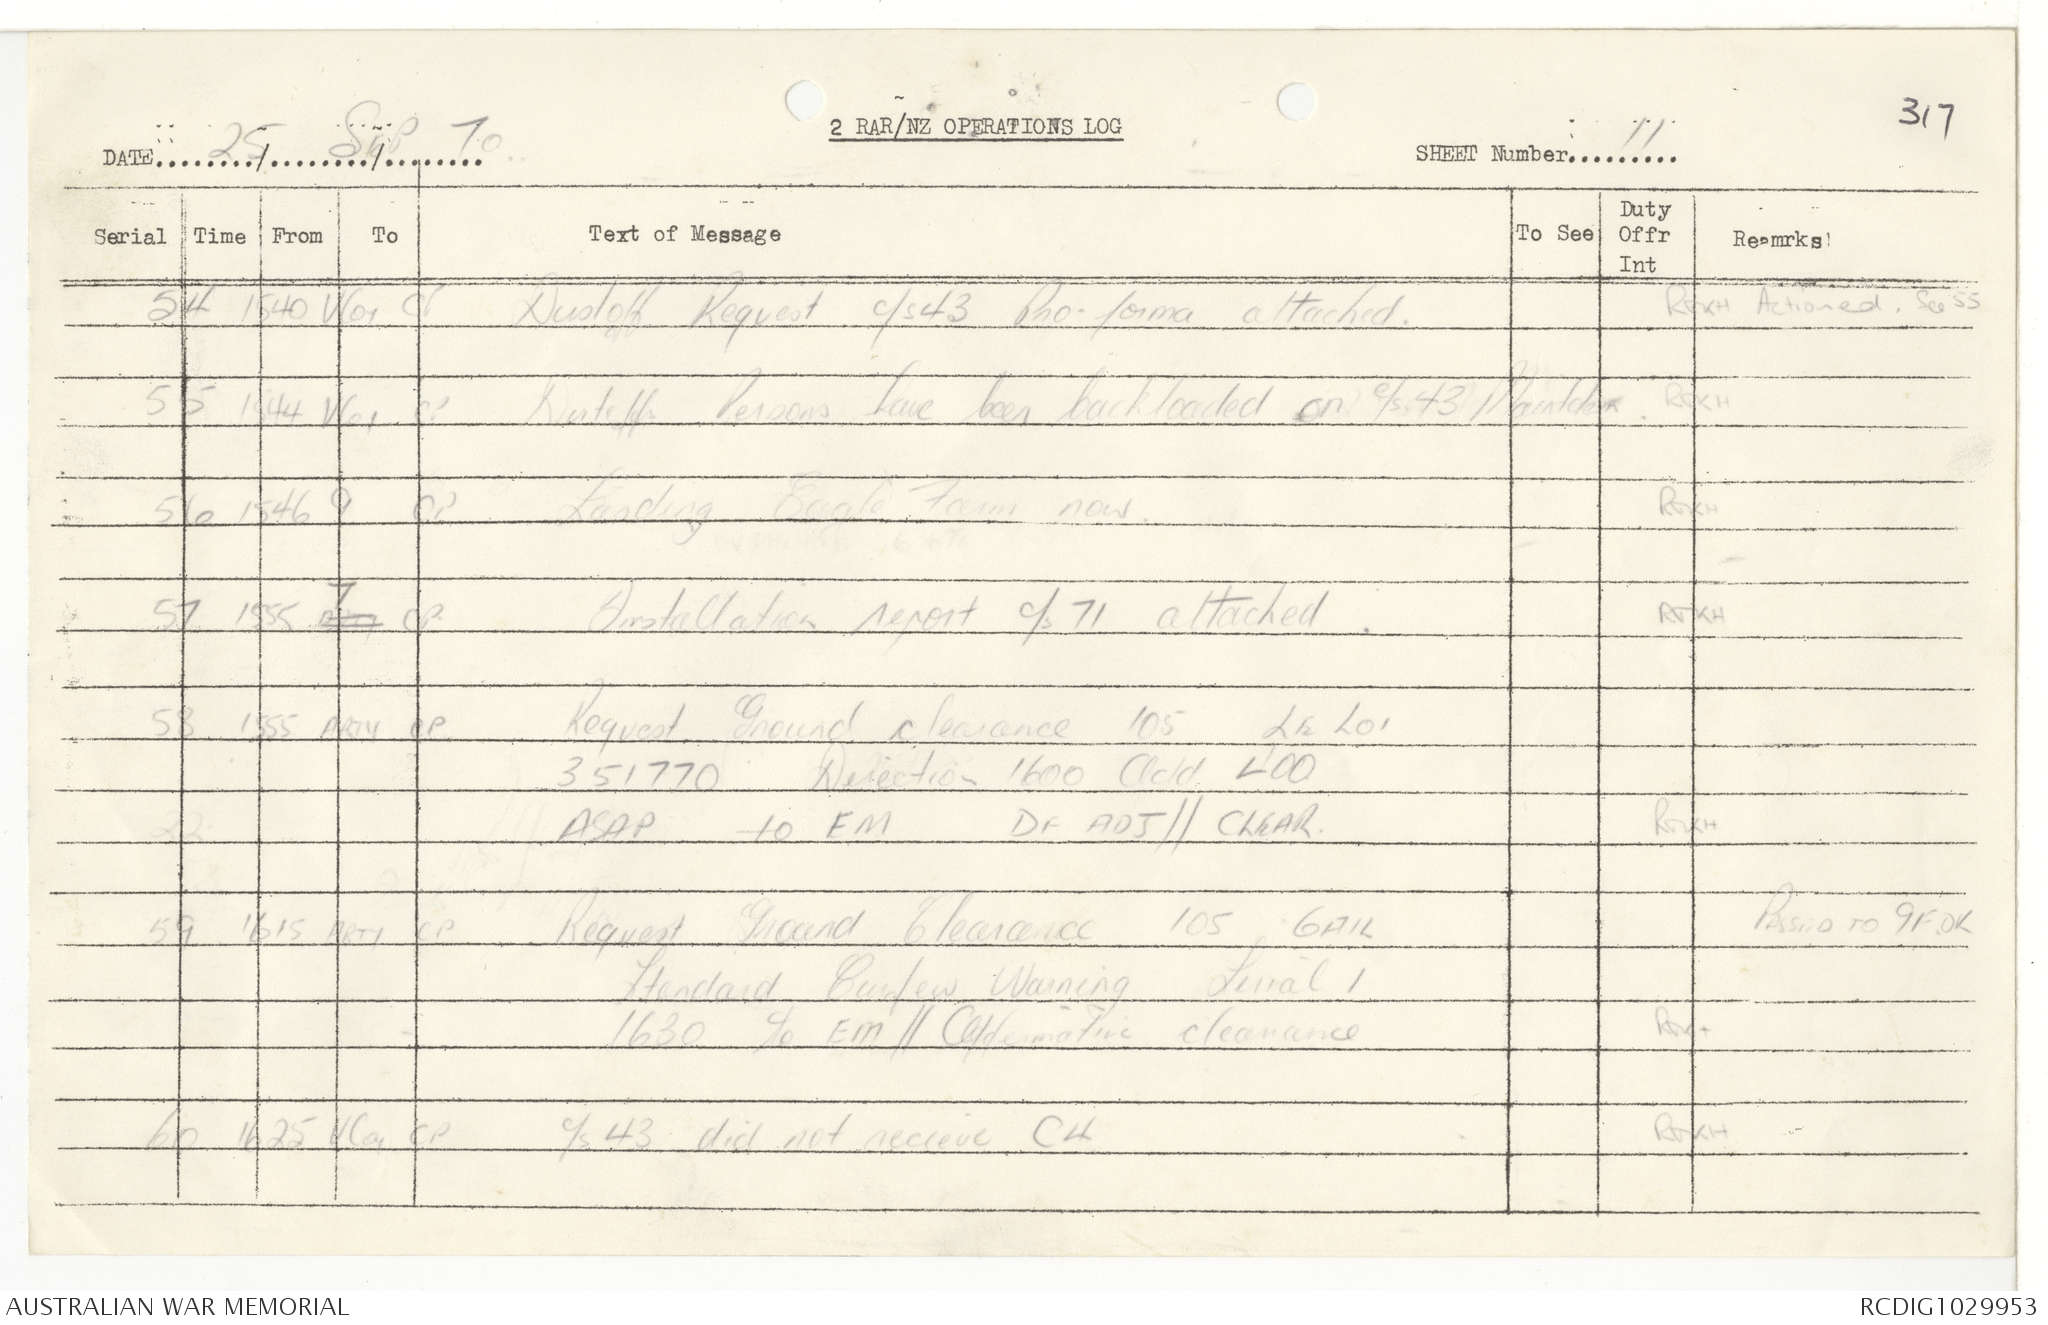 317
2 RAR/NZ OPERATIONS LOG
DATE 25 / Sep / 70
SHEET Number 11
Serial Time From To Text of Message To See Duty Offr Int Remrks
54 1540 VCoy CP Dustoff Request c/s 43 Pro-forma attached. Actioned. See 55
55 1544 VCoy CP Dustoffs Persons have been backloaded on c/s 43
56 1546 9 CP Landing Eagle Farm now.
57 1555 7 CP Installation report c/s 71 attached.
58 1555 ARTY CP Request Ground clearance 105 LE LOI
351770 Direction 1600 Add 400
ASAP to EM DF ADJ // CLEAR.
59 1615 ARTY CP Request Ground Clearance 105 GAIL Passed to 9F. OK
Standard Curfew Warning Serial 1
1630 to EM // Affirmative clearance
60 1625 VCoy CP c/s 43 did not recieve C4
AUSTRALIAN WAR MEMORIAL
RCDIG1029953